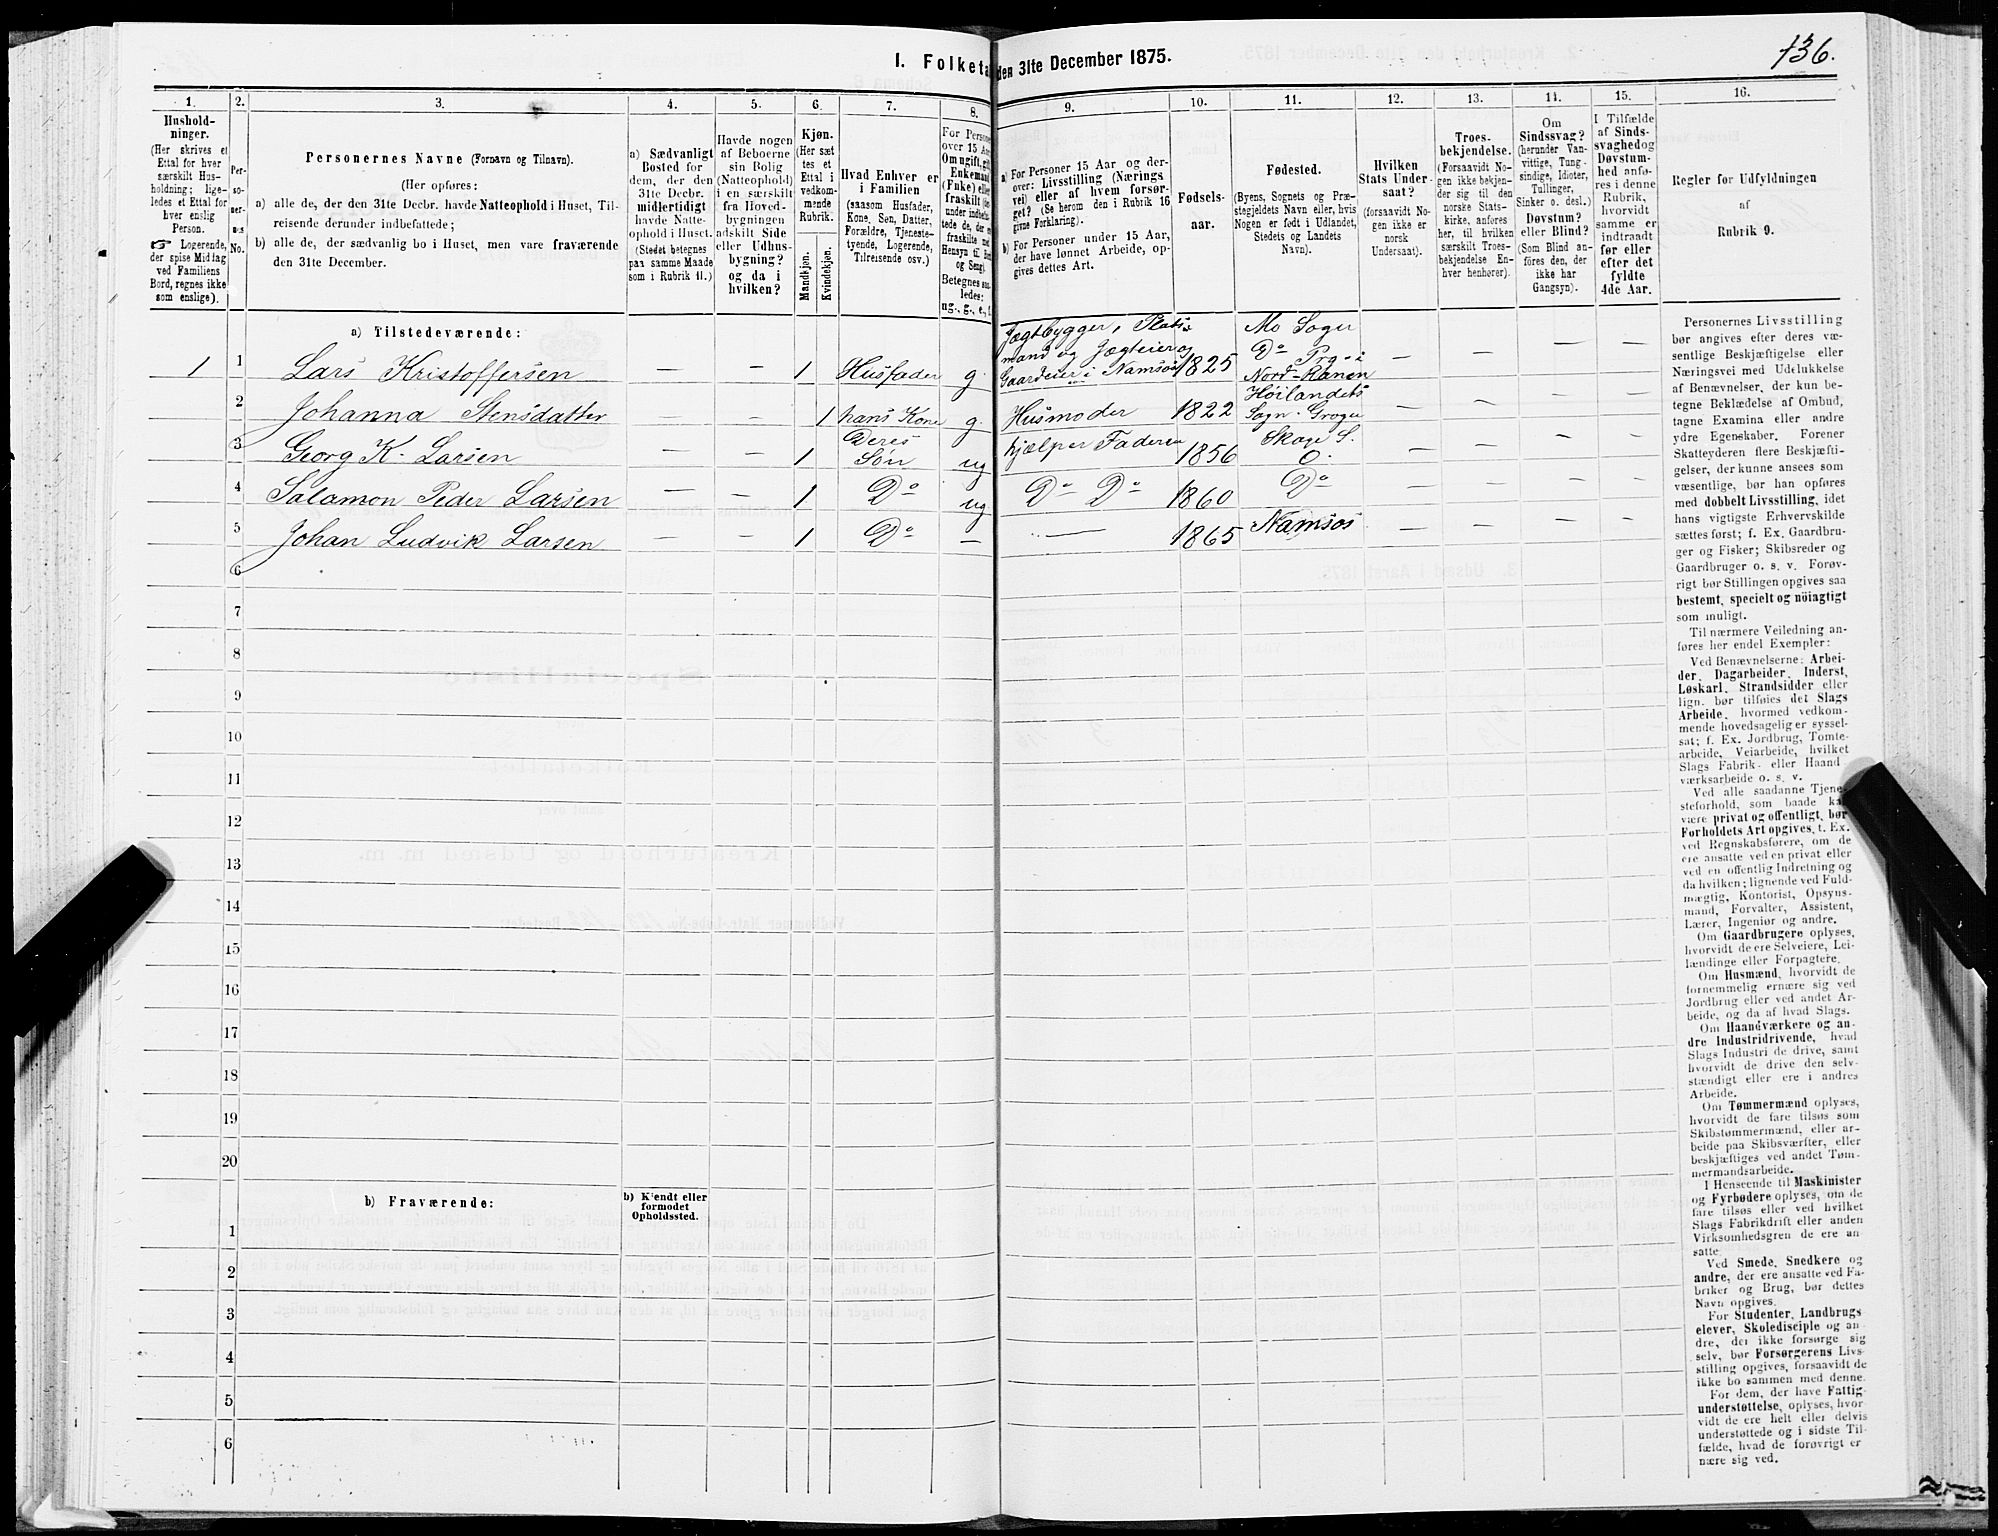 136.
I. Folketa
den 31te December 1875.
1.
2.
3.
4.
5.
6.
7.
8.
9.
10.
11.
12.
13.
14.
15.
16.
Hushold-
ninger.
(Her skrives et
Ettal for hver
særskilt Hus-
holdning; lige-
ledes et Ettal for
hver enslig
Person.
☞ Logerende,
der spise Middag
ved Familiens
Bord, regnes ikke
som enslige).
Per-
so-
ner-
nes
No.
Personernes Navne (Fornavn og Tilnavn).
(Her opføres:
a) alle de, der den 31te Decbr. havde Natteophold i Huset, Til-
reisende derunder indbefattede;
b) alle de, der sædvanlig bo i Huset, men vare fraværende
den 31te December.
a) Sædvanligt
Bosted for
dem, der den
31te Decbr.
midlertidigt
havde Natte-
ophold i Huset.
(Stedet betegnes
paa samme Maade
som i Rubrik 11.)
Havde nogen
af Beboerne
sin Bolig
(Natteophold)
i en særskilt
fra Hoved-
bygningen
adskilt Side
eller Udhus-
bygning?
og da i
hvilken?
Kjøn.
(Her sæt
tes et
Ettal i
vedkom-
mende
Rubrik.
Mandkjøn.
Kvindekjøn.
Hvad Enhver er
i Familien
(saasom Husfader,
Kone, Søn, Datter,
Forældre, Tjeneste-
tyende, Logerende,
Tilreisende osv.)
For Person
over 15 Aar
Om ugift, gift
Enkemand
(Enke) eller
fraskilt
Betegnes saa-
ledes:
ug., g., e.,
a) For Personer 15 Aar og der-
over: Livsstilling (Nærings
vei) eller af hvem forsør-
get? (Se herom den i Rubrik 16
givne Forklaring).
b) For Personer under 15 Aar,
der have lønnet Arbeide, op-
gives dettes Art.
Fødsels-
aar.
Fødested.
(Byens, Sognets og Præ-
stegjeldets Navn eller, hvis
Nogen er født i Udlandet,
Stedets og Landets
Navn).
Hvilken
Stats Under-
saat?
(forsaavidt No-
gen ikke er
norsk
Undersaat).
Troes-
bekjendelse.
(Forsaavidt No-
gen ikke bekjen-
der sig til den
norske Stats-
kirke, anføres
her, til hvilken
særskilt Troes-
bekjendelse En-
hver henhører).
Om
Sindssvag?
(herunder Van-
vittige, Tung-
sindige, Idioter,
Tullinger,
Sinker o. desl.)
Døvstum?
eller Blind?
(Som Blind an-
föres den, der
ikke har
Gangsyn).
I Tilfælde
af Sinds-
svaghed og
Døvstum-
hed anfø-
res i denne
Rubrik,
hvorvidt
samme er
indtraadt
før eller
efter det
fyldte
4de Aar.
Regler før Udfyldningen
af
Rubrik 9.
a) Tilstedeværende:
1 1 Lars Kristoffersen — — 1 Husfader g. Jægtbygger, Plads
mand og Jægteier og
Gaardeier i Namsos 1825 Mo Sogn
Do Prg. i
Nord-Ranen — — — —
2 Johanna Stensdatter — — 1 hans Kone g. Husmoder 1822 Høilandets
Sogn. Grogn — — — —
3 Georg K. Larsen — — 1 Deres
Søn ug hjælper Faderen 1856 Skage S.
O. — — — —
4 Salamon Peder Larsen — — 1 Do ug Do Do 1860 Do — — — —
5 Johan Ludvik Larsen — — 1 Do — — 1865 Namsos — — — —
6
7
8
9
10
11
12
13
14
15
16
17
18
19
20
b) Fraværende:
b) Kendt eller
formodet
Opholdssted.
1
2
3
4
5
6
Personernes Livsstilling
bør angives efter deres væ-
sentlige Beskjæftigelse eller
Næringsvei med Udelukkelse
af Benævnelser, der kun be-
tegne Beklædelse af Ombud,
tagne Examina eller andre
ydre Egenskaber. Forener
Skatteyderen flere Beskjæfti-
gelser, der kunne ansees som
væsentlige, bør han opføres
med dobbelt Livsstilling, idet
hans vigtigste Erhvervskilde
sættes først; f. Ex. Gaardbru-
ger og Fisker; Skibsreder og
Gaardbruger o. s. v. Forøv-
rigt bør Stillingen opgives saa
bestemt, specielt og nöiagtigt
som muligt.
Til nærmere Veiledning an-
føres her endel Exempler:
Ved Benævnelserne: Arbei-
der, Dagarbeider, Inderst,
Løskarl, Strandsidder eller
lign. bør tilføies det Slags
Arbeide, hvormed vedkom-
mende hovedsagelig er syssel-
sat; f. Ex. Jordbrug, Tomte-
arbeide, Veiarbeide, hvilket
Slags Fabrik- eller Haand
værksarbeide o. s. v.
Ved alle saadanne Tjene-
steforhold, som baade kan
være privat og offentligt, bør
Forholdets Art opgives, t. Ex.
ved Regnskabsførere, om de
ere ansatte ved en privat eller
ved en offentlig Indretning og
da hvilken; lignende ved Fuld-
mægtig, Kontorist, Opsyns-
mand, Forvalter, Assistent,
Lærer, Ingeniør og andre.
Om Gaardbrugere oplyses,
hvorvidt de ere Selveiere, Lei-
lændinge eller Forpagtere.
Om Husmænd, hvorvidt de
fornemmelig ernære sig ved
Jordbrug eller ved andet Ar-
beide, og da af hvad Slags.
Om Haandværkere og an-
dre Industridrivende, hvad
Slags Industri de drive, samt
hvorvidt de drive den selv-
stændigt eller ere i andres
Arbeide.
Om Tømmermænd oplyses,
hvorvidt de fare tilsøs som
Skibstømmermænd, eller ar-
beide paa Skibsværfter, eller
beskjæftiges ved andet Tøm-
mermandsarbeide.
I Henseende til Maskinister
og Fyrbødere oplyses, om de
fare tilsøs eller ved hvilket
Slags Fabrikdrift eller anden
Virksomhedsgren de ere an-
satte.
Ved Smede, Snedkere og
andre, der ere ansatte ved Fa-
briker og Brug, bør dettes
Navn opgives.
For Studenter, Landbrugs
elever, Skoledisciple og an-
dre, der ikke forsørge sig
selv, bør Forsørgerens Livs-
stilling opgives, forsaavidt de
ikke bo sammen med denne.
For dem, der have Fattig-
understøttelse, oplyses, hvor-
vidt de ere helt eller delvis
understøttede og i sidste Til-
fælde, hvad de forøvrigt er
nære sig ved.